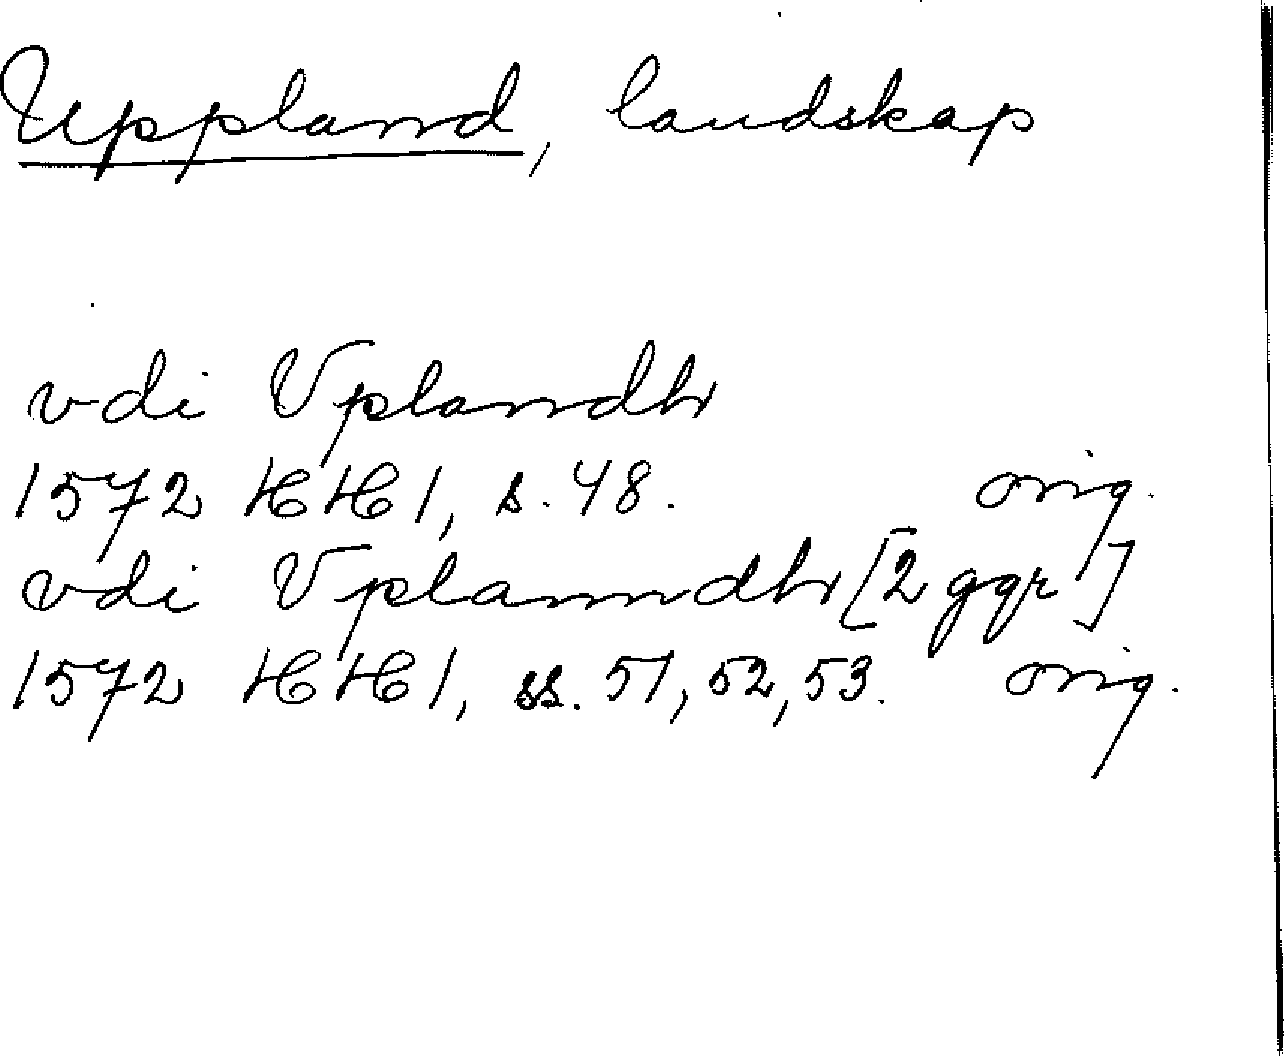 Uppland, landskap
vdi Vplandh
1572 HH 1, s. 48. orig.
vdi Vplanndh [2 ggr]
1572 HH 1, ss. 51, 52, 53. orig.